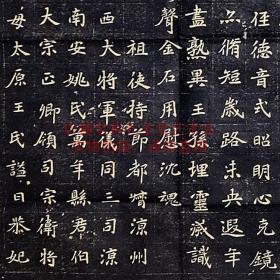 德音式昭明心克鏡
脩短歲路未央遐年
盡熟異王孫埋靈識
聲金石用志沈魂
祖使持節都督涼州
西大將軍儀同三司涼
南安姚氏萬年縣君伯
大宗正卿領司宗衛將
母太原王氏謚曰恭妃